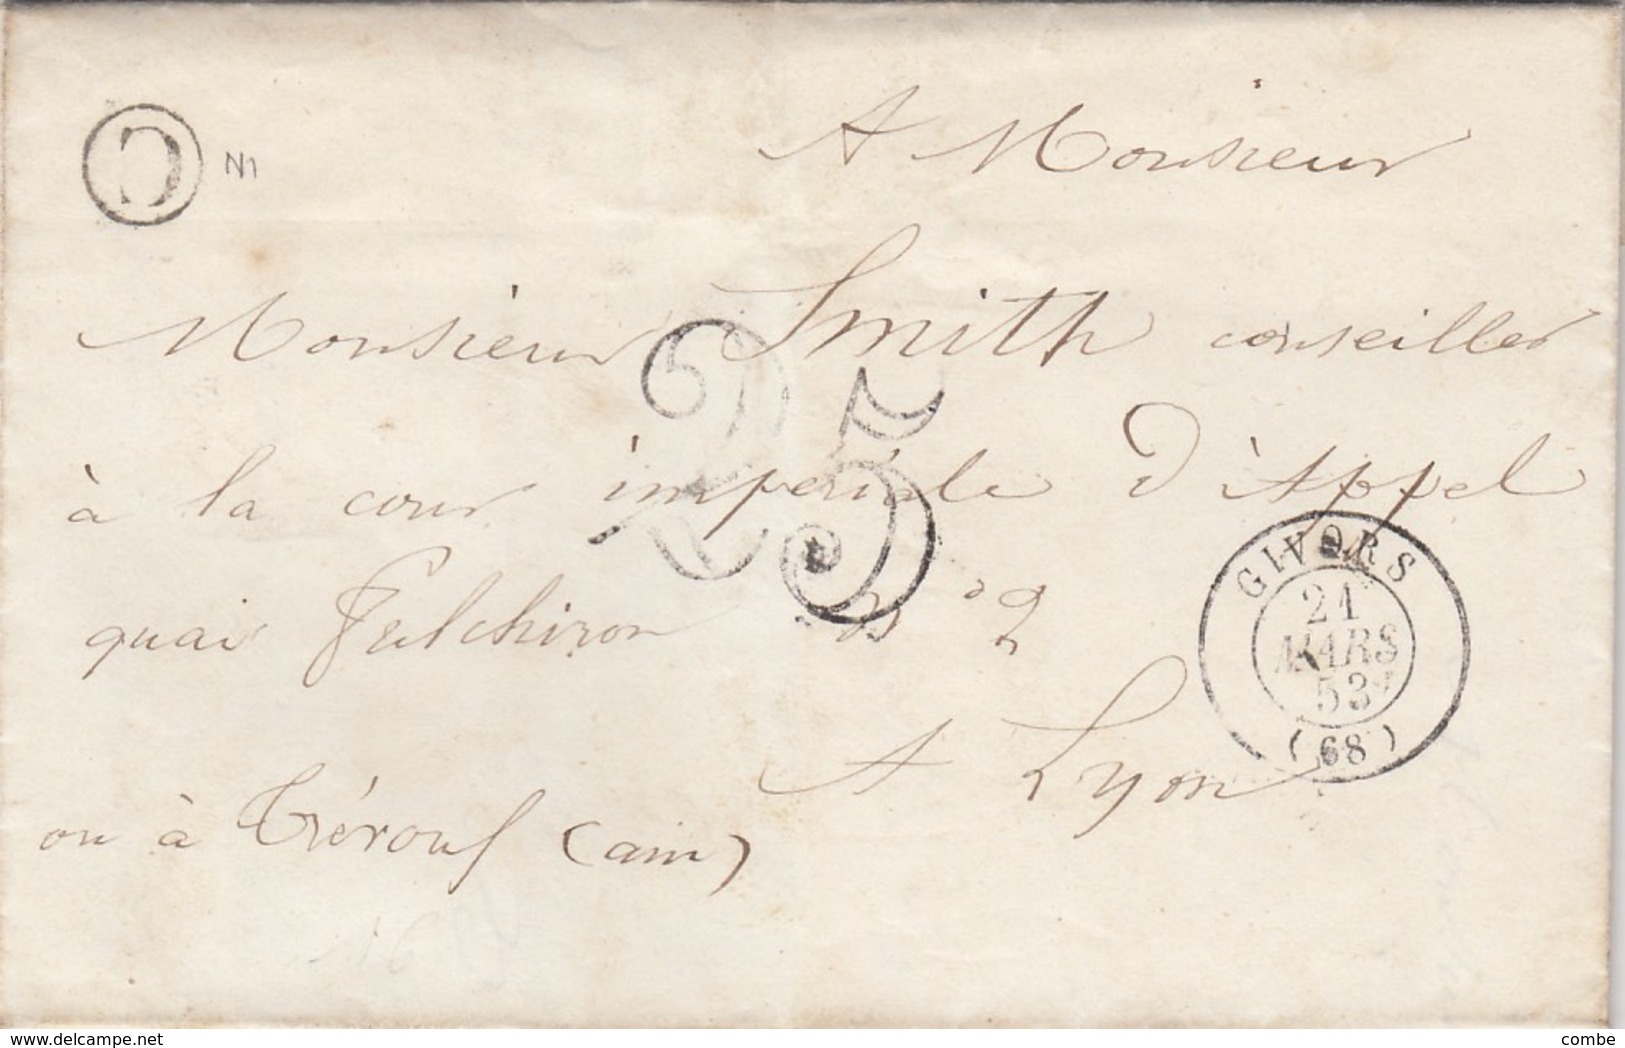 C
N1
A Monsieur
Monsieur Smith conseiller
à la cour impériale d'Appel
25
quai Fulchiron n° 2
GIVORS
21
MARS
53
(68)
A Lyon
ou à Trévoux (ain)
16
www.delcampe.net
combe